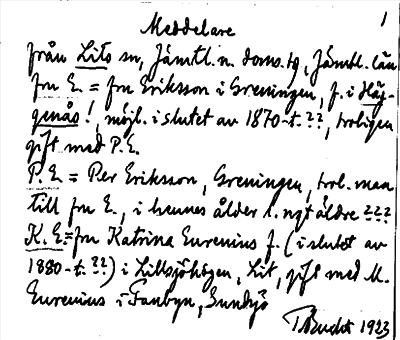 1
Meddelare
från Lits sn, Jämtl. n. doms. tg, Jämtl. län
fru E. = fru Eriksson i Greningen, f. i Häg-
genås!, möjl. i slutet av 1870-t.??, troligen
gift med P.E.
P.E. = Per Eriksson, Greningen, trol. man
till fru E., i hennes ålder l. ngt äldre ???
K.E. = fru Katrina Eurenius f. (i slutet av
1880-t.??) i Littsjöhögen, Lit, gift med M.
Eurenius i Fanbyn, Sundsjö
1923